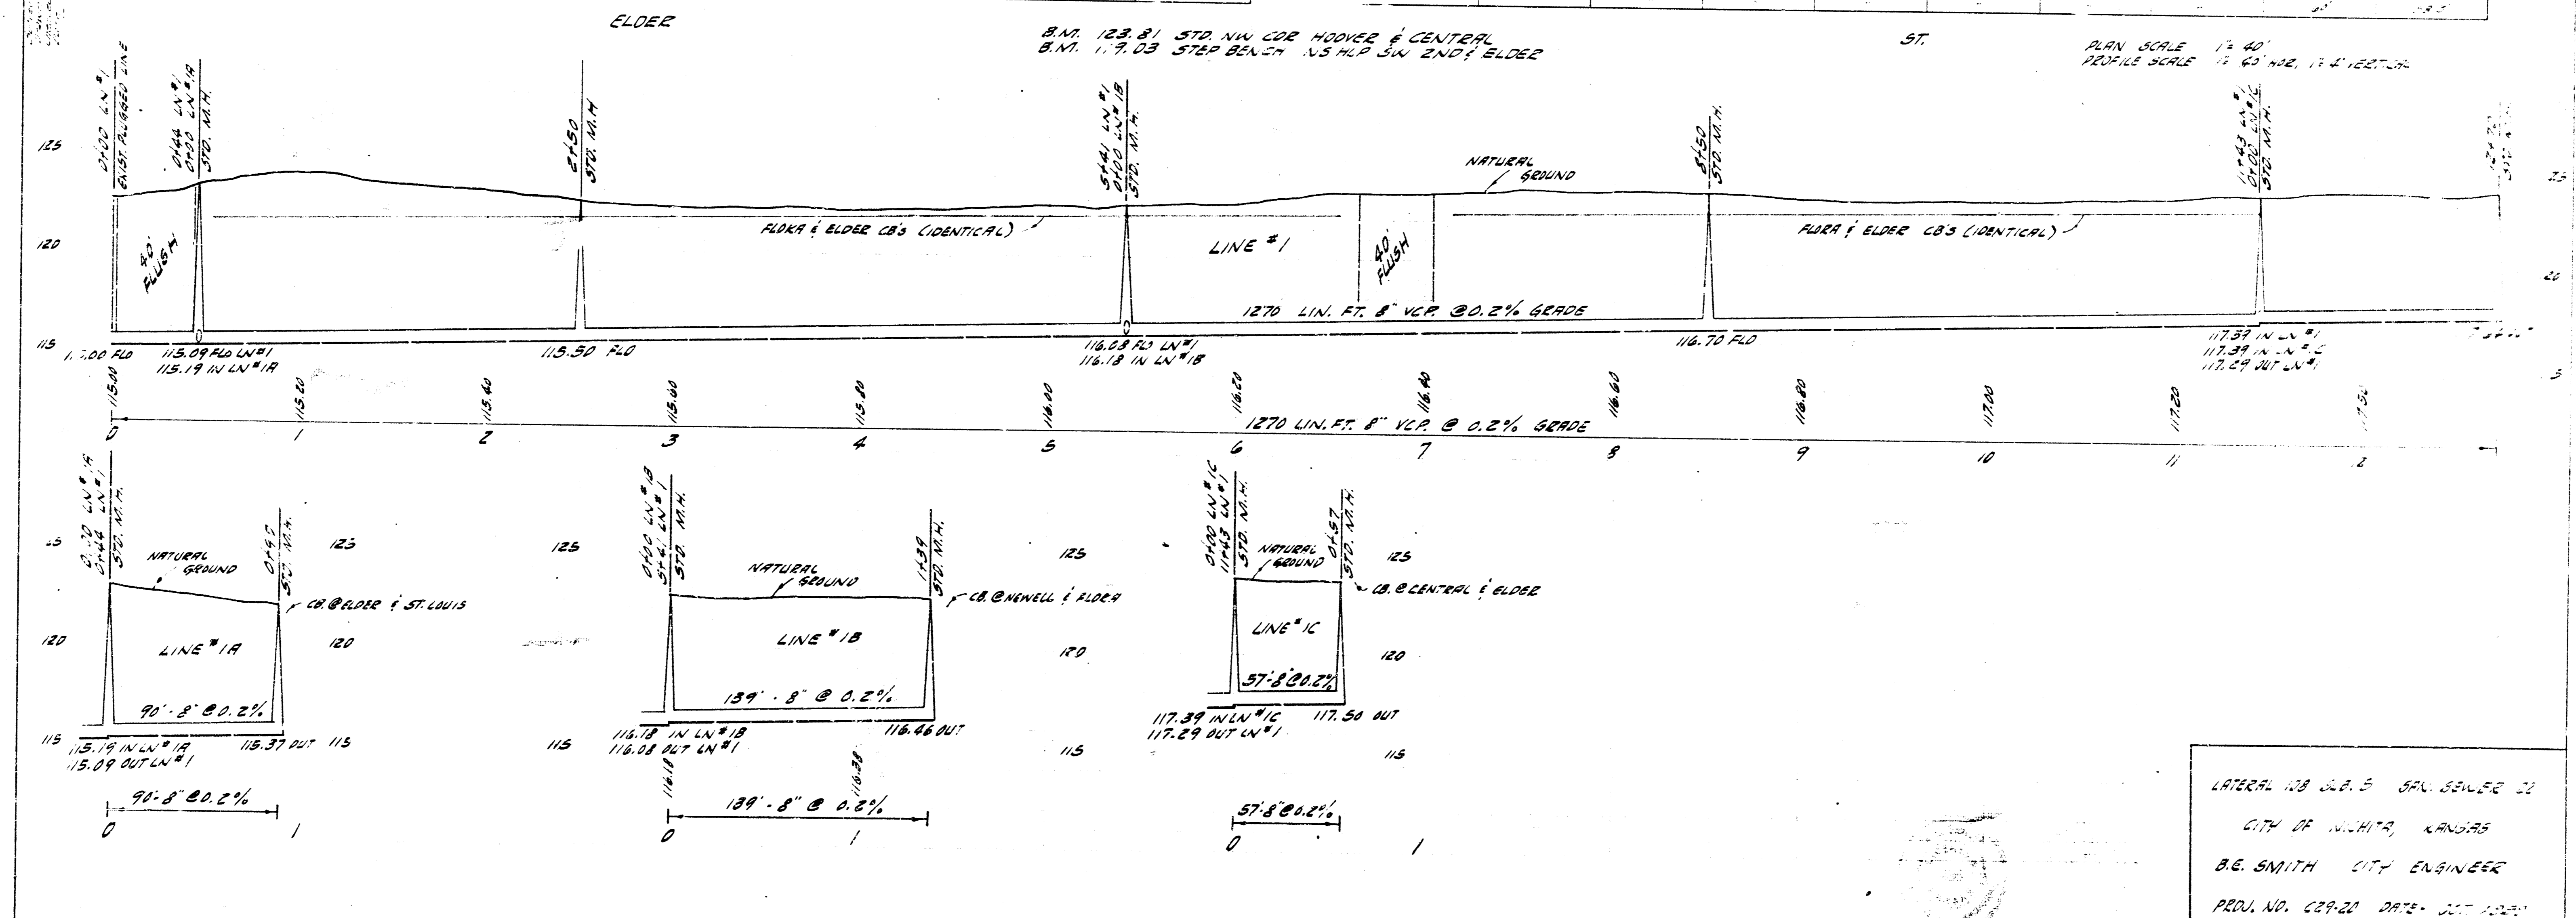 ELDER
ST.
B.M. 123.81 STD. NW COR HOOVER & CENTRAL
B.M. 119.03 STEP BENCH NS HLP SW 2ND & ELDER
PLAN SCALE 1"= 40'
PROFILE SCALE 1"= 40' HOR, 1"= 4' VERTICAL
0+00 LN #1
EXIST. PLUGGED LINE
0+44 LN #1
0+00 LN #1A
STD. M.H.
2+50
STD. M.H.
5+41 LN #1
0+00 LN #1B
STD. M.H.
8+50
STD. M.H.
11+43 LN #1
0+00 LN #1C
STD. M.H.
12+70
STD. M.H.
125
120
115
NATURAL
GROUND
40'
FLUSH
FLORA & ELDER CB'S (IDENTICAL)
LINE #1
40'
FLUSH
FLORA & ELDER CB'S (IDENTICAL)
20
1270 LIN. FT. 8" VCP. @ 0.2% GRADE
FLO
115.09 FLO LN #1
115.19 IN LN #1A
115.50 FLO
116.08 FLO LN #1
116.18 IN LN #1B
116.70 FLO
117.39 IN LN #1
117.39 IN LN #1C
117.29 OUT LN #1
115.00
115.20
115.40
115.60
115.80
116.00
116.20
116.40
116.60
116.80
117.00
117.20
1270 LIN. FT. 8" VCP. @ 0.2% GRADE
0 1 2 3 4 5 6 7 8 9 10 11
0+00 LN #1A
0+44 LN #1
STD. M.H.
STD. M.H.
NATURAL
GROUND
125
120
115
CB. @ ELDER & ST. LOUIS
LINE #1A
90'-8" @ 0.2%
115.19 IN LN #1A
115.09 OUT LN #1
115.37 OUT
90'-8" @ 0.2%
0 1
125
115
0+00 LN #1B
5+41 LN #1
STD. M.H.
1+39
STD. M.H.
NATURAL
GROUND
125
120
115
CB. @ NEWELL & FLORA
LINE #1B
139'-8" @ 0.2%
116.18 IN LN #1B
116.08 OUT LN #1
116.46 OUT
116.18
116.38
139'-8" @ 0.2%
0 1
0+00 LN #1C
11+43 LN #1
STD. M.H.
0+57
STD. M.H.
NATURAL
GROUND
125
120
115
CB. @ CENTRAL & ELDER
LINE #1C
57'-8" @ 0.2%
117.39 IN LN #1C
117.29 OUT LN #1
117.50 OUT
57'-8" @ 0.2%
0 1
LATERAL 108 SAN. SEWER 22
CITY OF WICHITA, KANSAS
B.E. SMITH CITY ENGINEER
PROJ. NO. C29-20 DATE- OCT